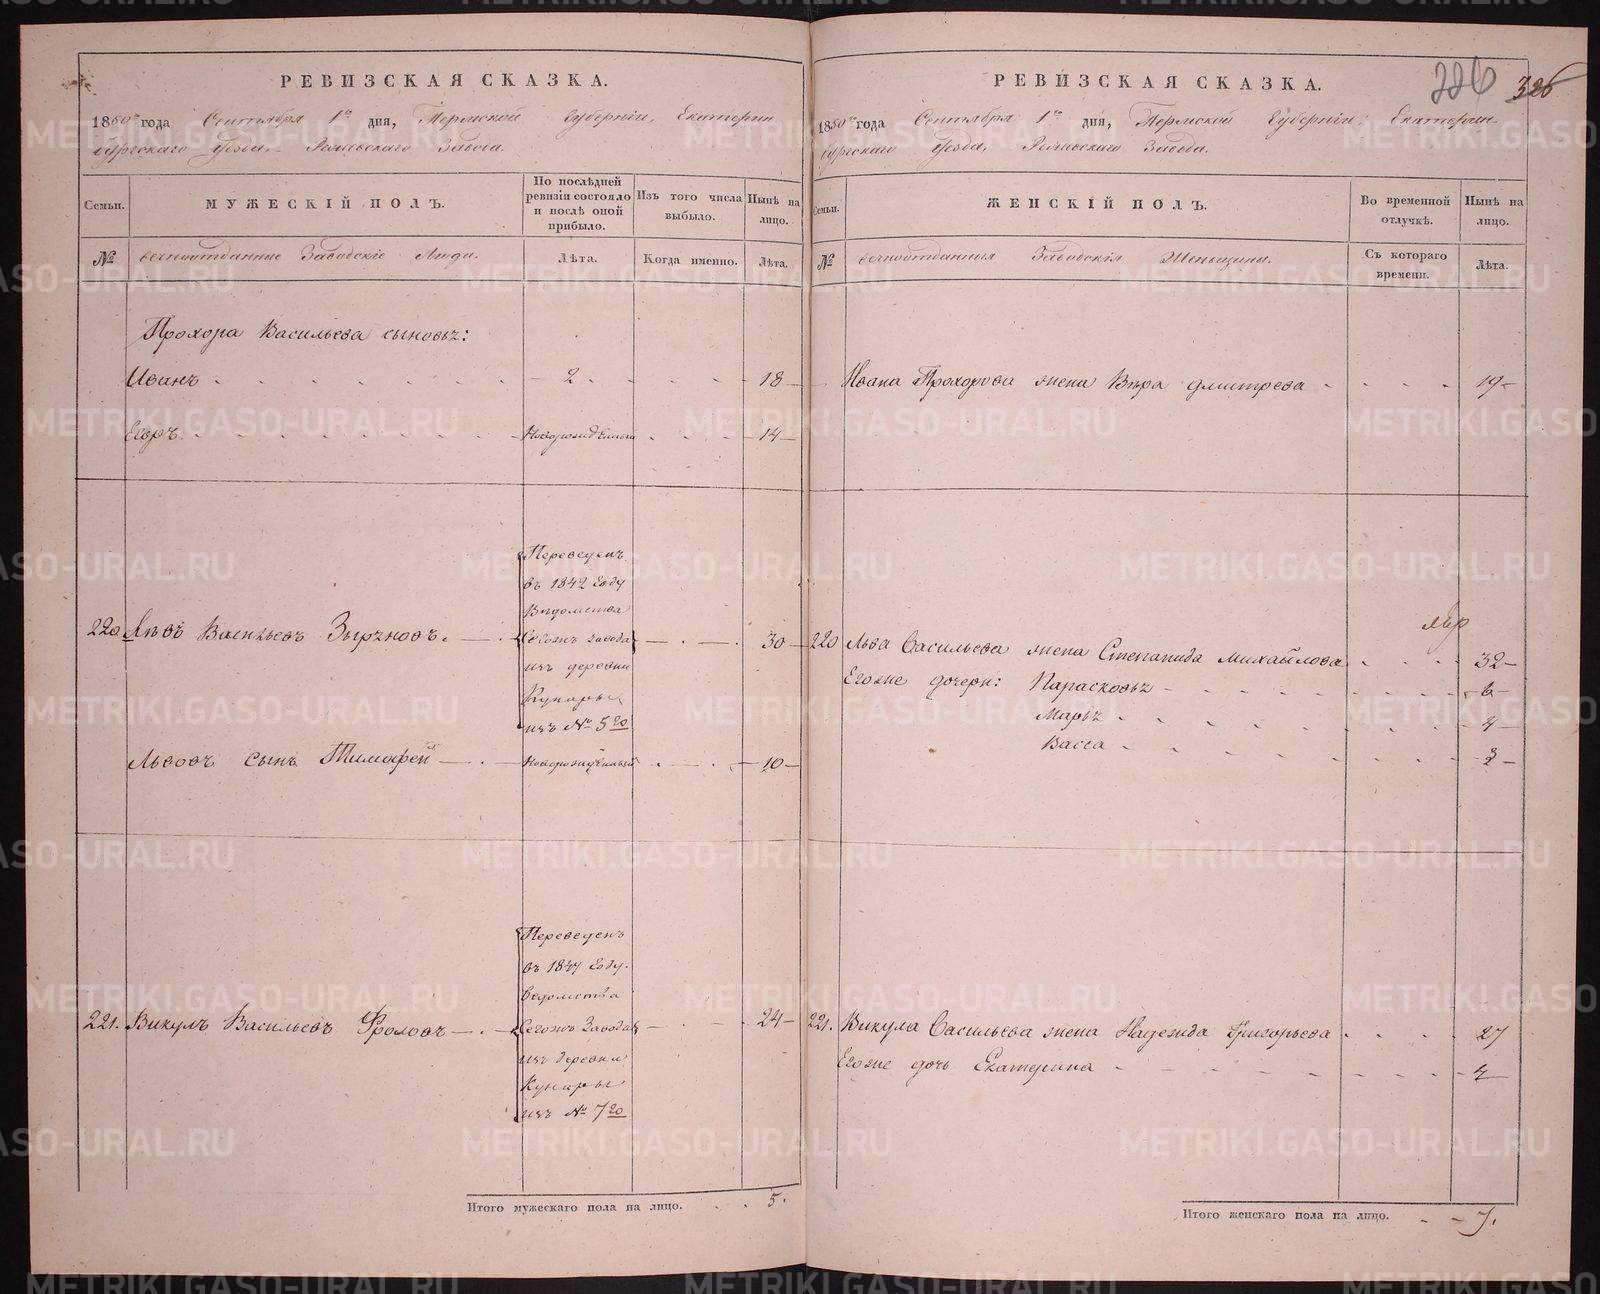 РЕВИЗСКАЯ СКАЗКА.
1850го года Сентября 1го дня, Пермской Губерніи, Екатерин
бургскаго Уѣзда, Режевскаго Завода.
Семьи.
МУЖЕСКІЙ ПОЛЪ.
По послѣдней
ревизіи состояло
и послѣ оной
прибыло.
Изъ того числа
выбыло.
Нынѣ на
лицо.
№
вечноотданные Заводскіе Люди.
Лѣта.
Когда именно.
Лѣта.
Прохора Васильева сыновья:
Иванъ 2 18
Егоръ новорожденный 14
Переведенъ
въ 1842 Году
Ведомства
220 Левъ Васильевъ Зыряновъ Сегожъ завода 30
изъ деревни
Кунары
изъ № 5го
Львовъ сынъ Тимофей новорожденный 10
Переведенъ
въ 1847 Году
Ведомства
221. Викулъ Васильевъ Фроловъ Сегожъ Завода 24
изъ деревни
Кунары
изъ № 7го
Итого мужескаго пола на лицо. 5.
326
РЕВИЗСКАЯ СКАЗКА.
1850го года Сентября 1го дня, Пермской Губерніи, Екатерин
бургскаго Уѣзда, Режевскаго Завода.
Семьи.
ЖЕНСКІЙ ПОЛЪ.
Во временной
отлучкѣ.
Нынѣ на
лицо.
№
вечноотданныя Заводскія Женьщины.
Съ котораго
времени.
Лѣта.
Ивана Прохорова жена Вѣра Дмитрева 19
220 Льва Васильева жена Степанида Михайлова 32
Егоже дочери: Парасковья 6
Марья 4
Васса 2
221. Викула Васильева жена Надежда Григорьева 27
Егоже дочь Екатерина 4
Итого женскаго пола на лицо. 7.
METRIKI.GASO-URAL.RU